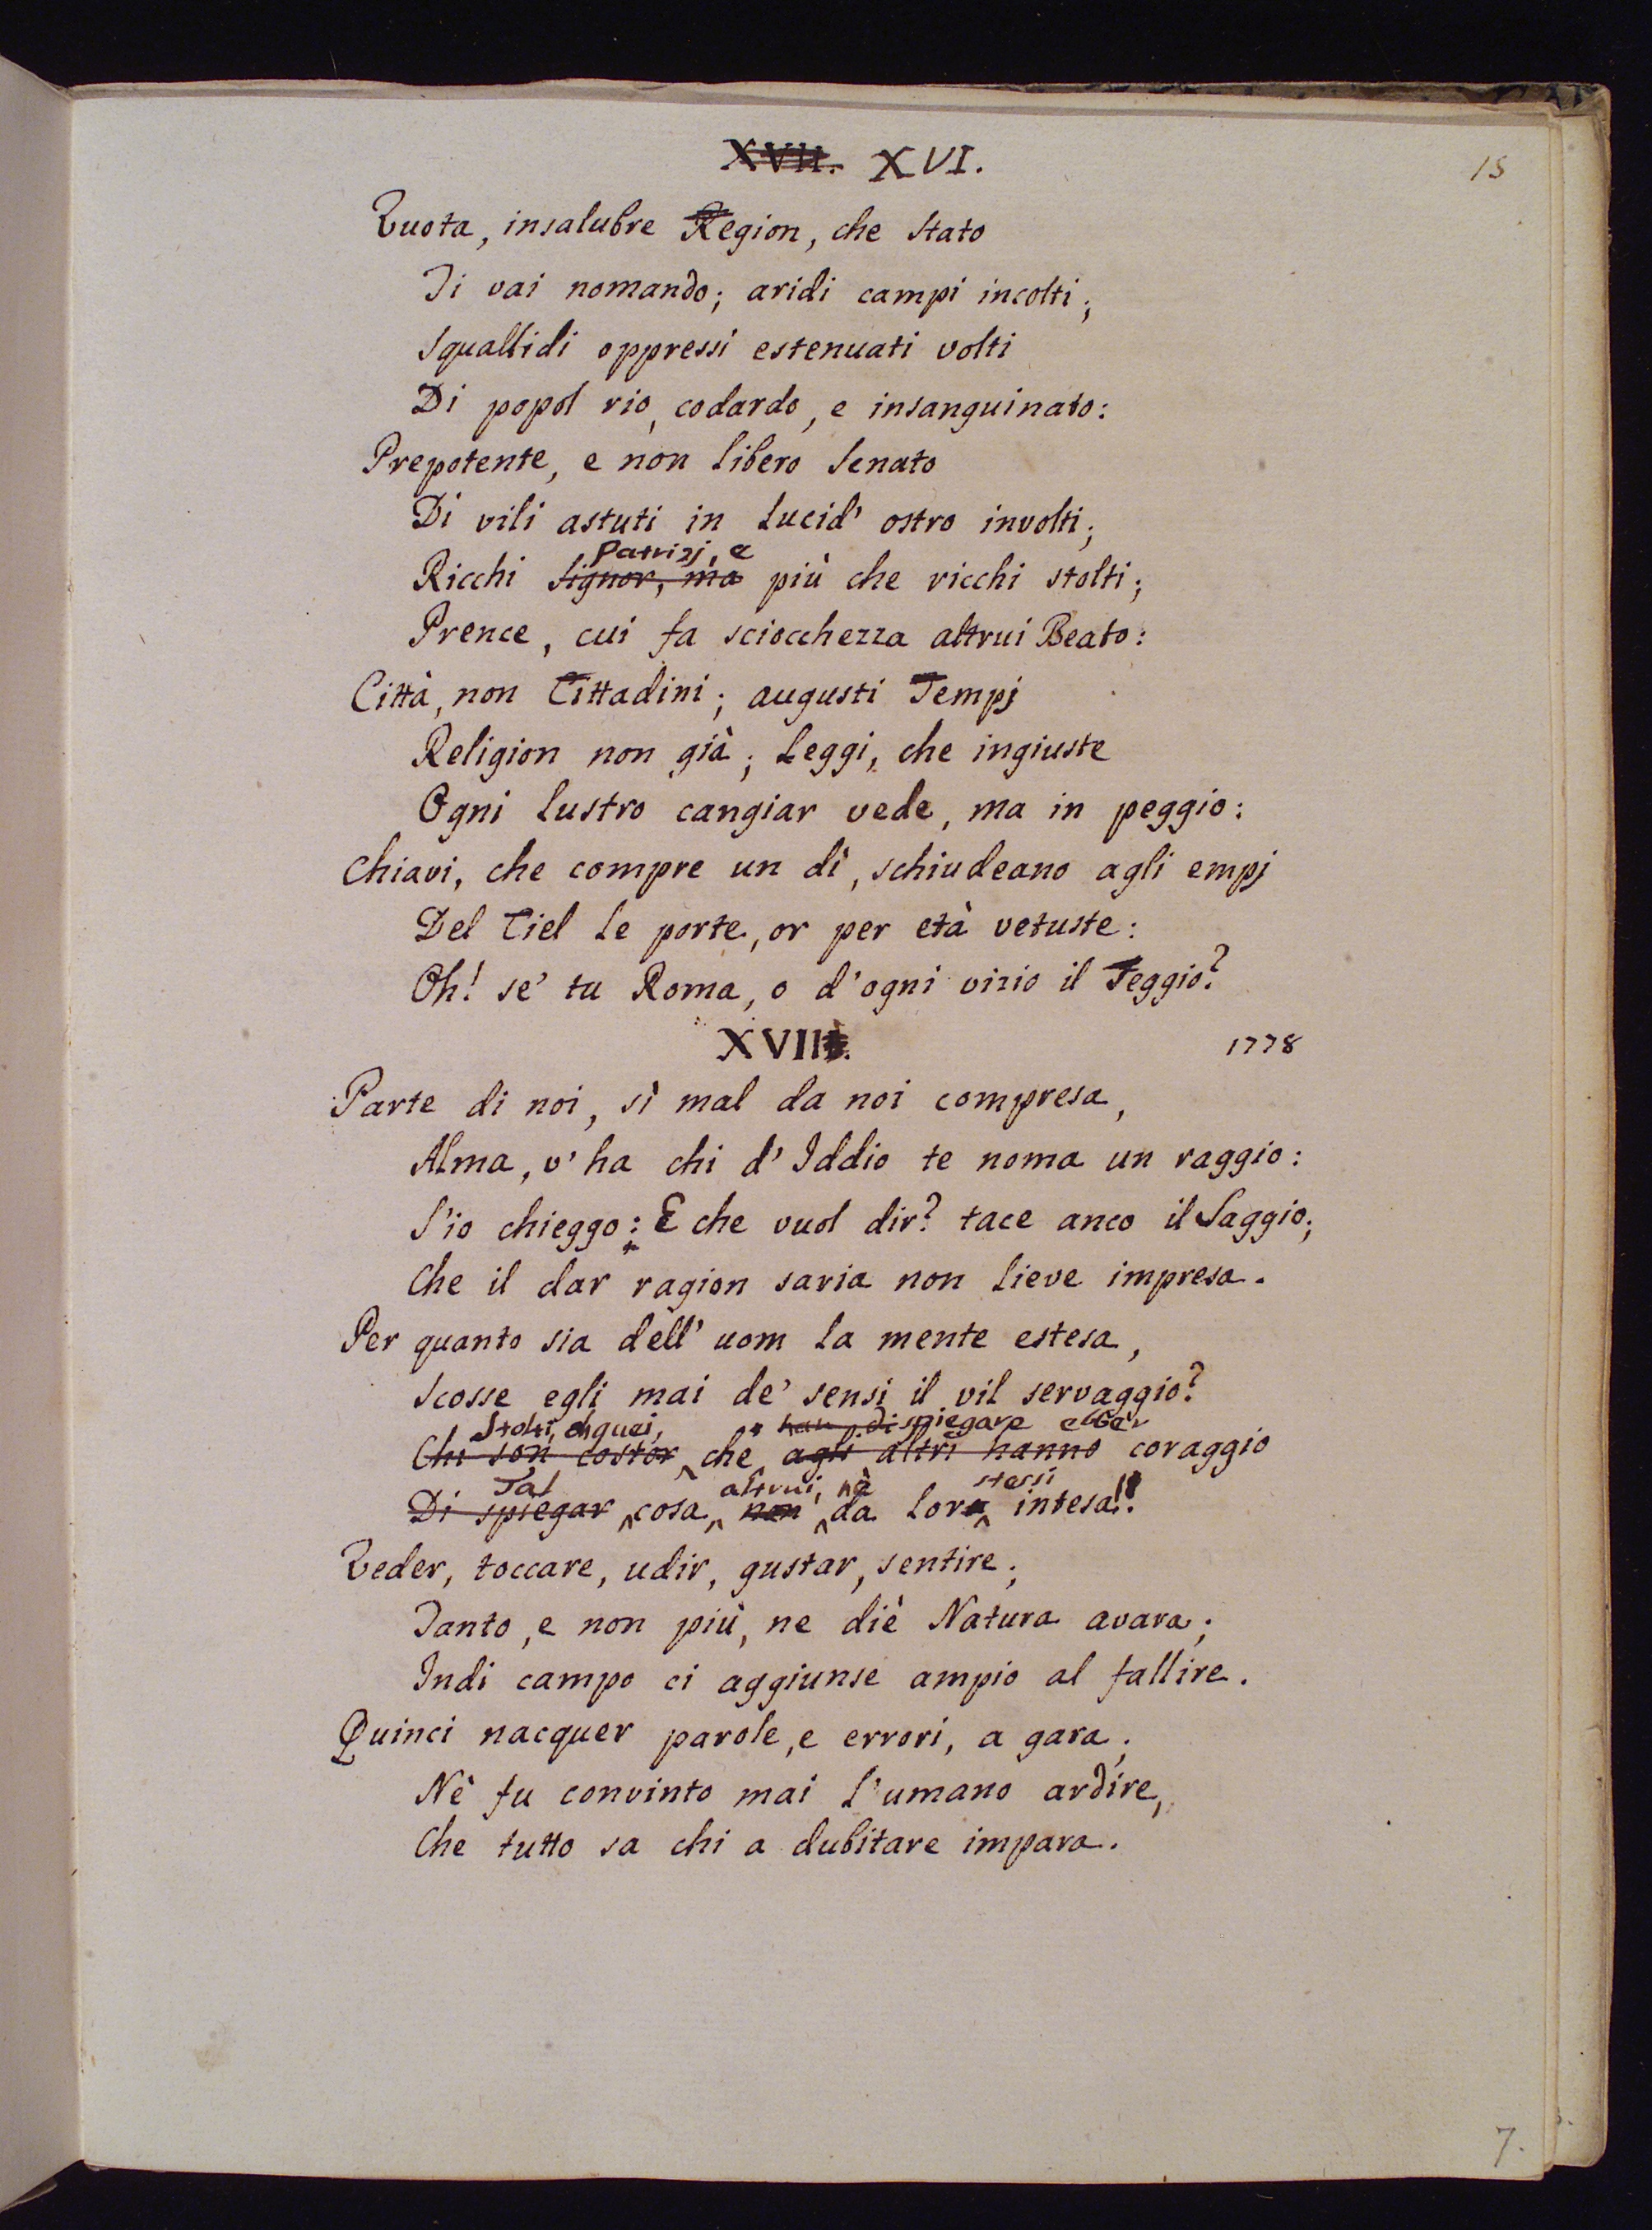 XVII. XVI.
15
Vuota, insalubre Region, che Stato
Ti vai nomando; aridi campi incolti;
Squallidi oppressi estenuati volti
Di popol rio, codardo, e insanguinato:
Prepotente, e non libero Senato
Di vili astuti in lucid' ostro involti;
Patrizj, e
Ricchi Signor, ma più che ricchi stolti;
Prence, cui fa sciocchezza altrui Beato:
Città, non Cittadini; augusti Tempj
Religion non già; Leggi, che ingiuste
Ogni lustro cangiar vede, ma in peggio:
Chiavi, che compre un dì, schiudeano agli empj
Del Ciel le porte, or per età vetuste:
Oh! se' tu Roma, o d'ogni vizio il Seggio?
XVII.
1778
Parte di noi, sì mal da noi compresa,
Alma, v'ha chi d'Iddio te noma un raggio:
S'io chieggo: E che vuol dir? tace anco il Saggio;
Che il dar ragion saria non lieve impresa.
Per quanto sia dell' uom la mente estesa,
Scosse egli mai de' sensi il vil servaggio?
Stolti, quei, han, di spiegare ebber
Chi son costor che agli altri hanno coraggio
Tal altrui, nè stessi
Di spiegar cosa non da lor intesa!
Veder, toccare, udir, gustar, sentire;
Tanto, e non più, ne diè Natura avara;
Indi campo ci aggiunse ampio al fallire.
Quinci nacquer parole, e errori, a gara;
Nè fu convinto mai l'umano ardire,
Che tutto sa chi a dubitare impara.
7.